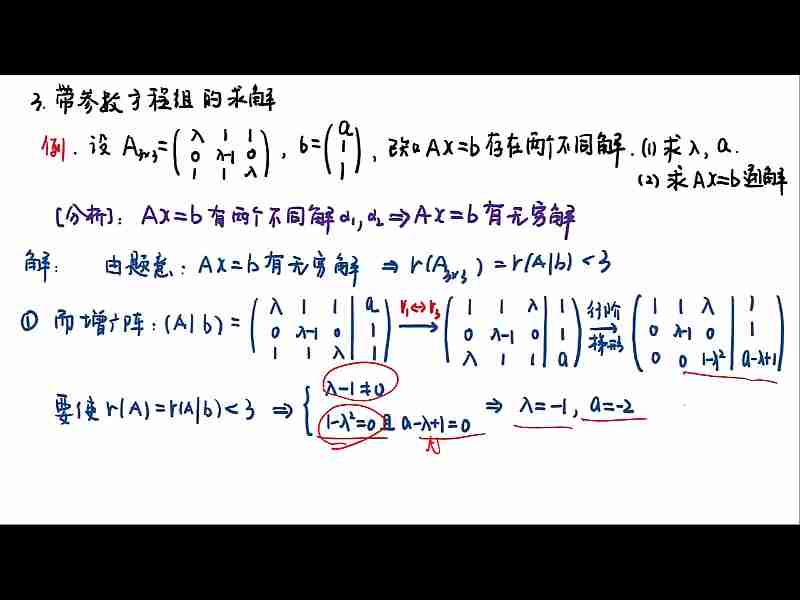 3. 带参数方程组的求解
例. 设 A₃ₓ₃=(λ 1 1; 0 λ-1 0; 1 1 λ), b=(a; 1; 1), 已知 AX=b 存在两个不同解. (1) 求 λ, a.
(2) 求 AX=b 通解
[分析]: AX=b 有两个不同解 α₁, α₂ ⇒ AX=b 有无穷解
解: 由题意: AX=b 有无穷解 ⇒ r(A₃ₓ₃) = r(A|b) < 3
① 而增广阵: (A|b) = (λ 1 1 | a; 0 λ-1 0 | 1; 1 1 λ | 1) r₁↔r₃ → (1 1 λ | 1; 0 λ-1 0 | 1; λ 1 1 | a) 行阶梯形 → (1 1 λ | 1; 0 λ-1 0 | 1; 0 0 1-λ² | a-λ+1)
要使 r(A)=r(A|b)<3 ⇒ { λ-1≠0
1-λ²=0 且 a-λ+1=0 ⇒ λ=-1, a=-2